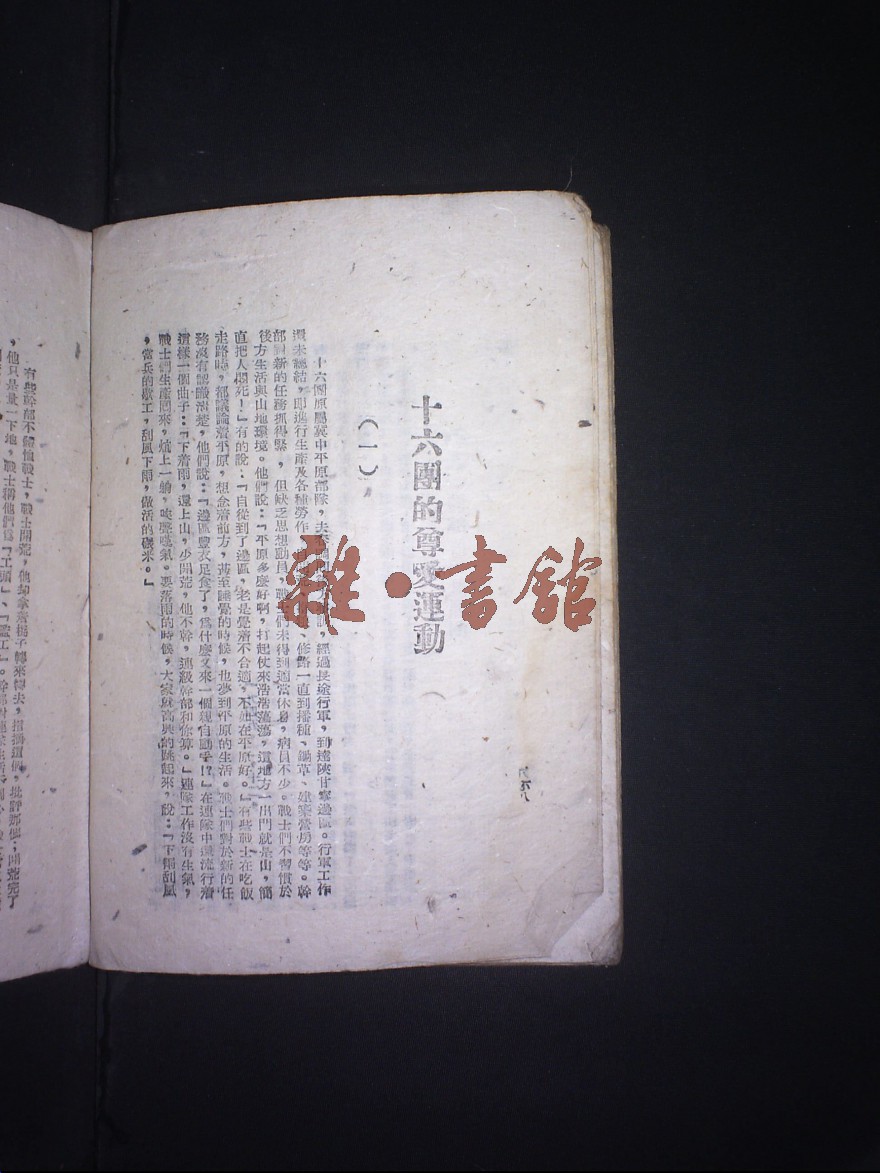 十六團的尊愛運動
(一)
十六團原屬冀中平原部隊,經過長途行軍,到達陝甘寧邊區。行軍工作
還未總結,即進行生產及各種勞作,修路一直到播種、鋤草、建築營房等等。幹
部對新的任務抓得緊,但缺乏思想動員,戰士們未得到適當休息,病員不少。戰士們不習慣於
後方生活與山地環境。他們說:「平原多麼好啊,打起仗來浩浩蕩蕩,這地方一出門就是山,簡
直把人悶死!」有的說:「自從到了邊區,老是覺着不合適,不如在平原好。」有些戰士在吃飯
走路時,都議論着平原,想念着前方,甚至睡覺的時候,也夢到平原的生活。戰士們對於新的任
務沒有認識清楚,他們說:「邊區豐衣足食了,爲什麼又來一個親自動手!?」在連隊中還流行着
這樣一個曲子:「下着雨,還上山,少開荒,他不幹,連級幹部和你算。」連隊工作沒有生氣,
戰士們生產回來,炕上一躺,唉聲嘆氣。要落雨的時候,大家就高興的跳起來,說:「下雨刮風
,當兵的歇工,刮風下雨,做活的礙米。」
有些幹部不體恤戰士,戰士開荒,他却拿着棍子轉來轉去,指揮這個,批評那個,開荒完了
,他只是量一下地,戰士稱他們爲「工頭」、「監工」。